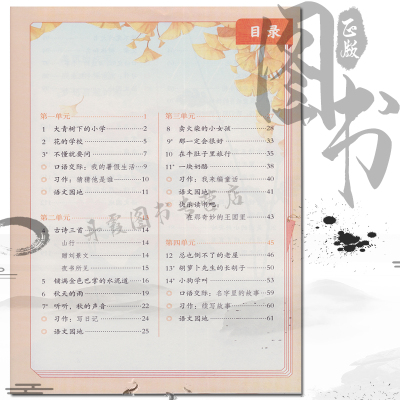 目录
第一单元 1
1 大青树下的小学 2
2 花的学校 5
3* 不懂就要问 7
口语交际：我的暑假生活 9
习作：猜猜他是谁 10
语文园地 11
第二单元
4 古诗三首 14
山行 14
赠刘景文 14
夜书所见 14
5 铺满金色巴掌的水泥道 16
6 秋天的雨 19
7* 听听，秋的声音 22
习作：写日记 24
语文园地 25
第三单元
8 卖火柴的小女孩 28
9* 那一定会很好 33
10 在牛肚子里旅行 35
11* 一块奶酪 38
习作：我来编童话 40
语文园地 41
快乐读书吧：
在那奇妙的王国里 43
第四单元 45
12 总也倒不了的老屋 46
13* 胡萝卜先生的长胡子 50
14* 小狗学叫 53
口语交际：名字里的故事 59
习作：续写故事 60
语文园地 61
正版
图书
丹霞图书专营店